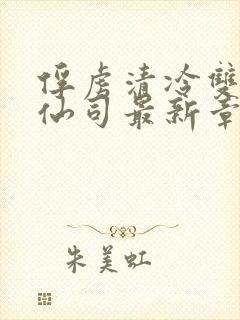 俘虏清冷雙
仙司最新章
朱美虹